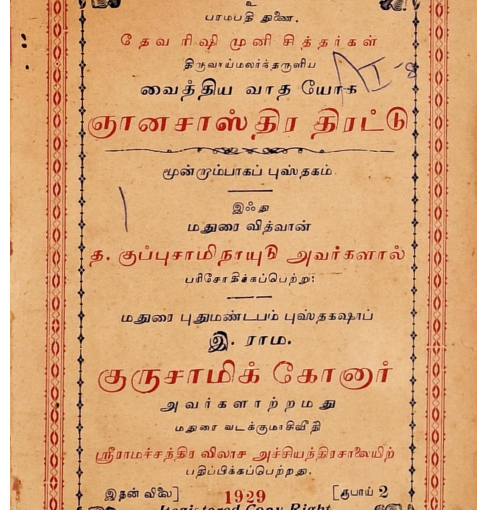 உ
பராபதி துணை.
தேவ ரிஷி முனி சித்தர்கள்
திருவாய்மலர்ந்தருளிய
வைத்திய வாத யோக
ஞானசாஸ்திர திரட்டு
மூன்றாம்பாகப் புஸ்தகம்.
இஃது
மதுரை வித்வான்
த. குப்புசாமிநாயுடு அவர்களால்
பரிசோதிக்கப்பெற்று;
மதுரை புதுமண்டபம் புஸ்தகஷாப்
இ. ராம.
குருசாமிக் கோனார்
அவர்களாற்றமது
மதுரை வடக்குமாசிவீதி
ஸ்ரீராமச்சந்திர விலாச அச்சியந்திரசாலையிற்
பதிப்பிக்கப்பெற்றது.
இதன் விலை] 1929 [ரூபாய் 2
Registered Copy Right